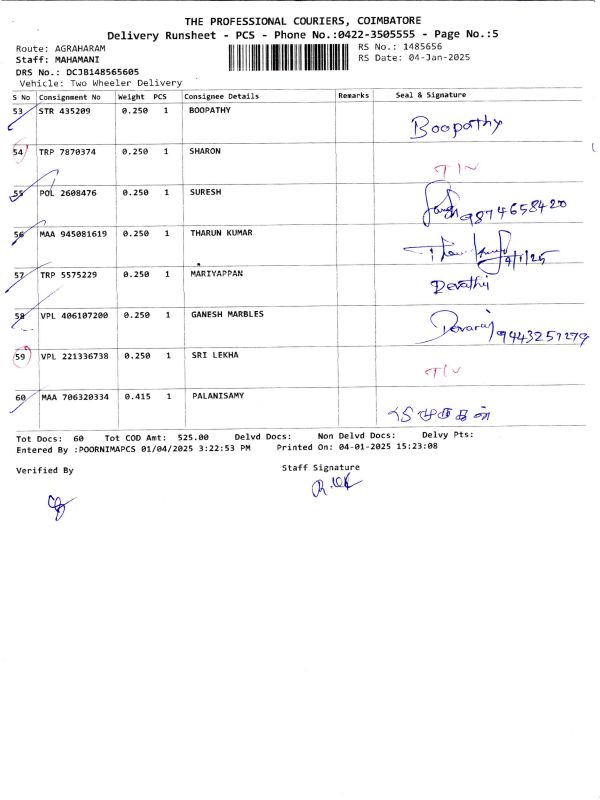 THE PROFESSIONAL COURIERS, COIMBATORE
Delivery Runsheet - PCS - Phone No.:0422-3505555 - Page No.:5
Route: AGRAHARAM
RS No.: 1485656
Staff: MAHAMANI
RS Date: 04-Jan-2025
DRS No.: DCJB148565605
Vehicle: Two Wheeler Delivery
S No Consignment No Weight PCS Consignee Details Remarks Seal & Signature
53 STR 435209 0.250 1 BOOPATHY Boopathy
54 TRP 7870374 0.250 1 SHARON
55 POL 2608476 0.250 1 SURESH 9874658420
56 MAA 945081619 0.250 1 THARUN KUMAR 4/1/25
57 TRP 5575229 0.250 1 MARIYAPPAN Revathi
58 VPL 406107200 0.250 1 GANESH MARBLES Devaraj 9443257279
59 VPL 221336738 0.250 1 SRI LEKHA
60 MAA 706320334 0.415 1 PALANISAMY
Tot Docs: 60 Tot COD Amt: 525.00 Delvd Docs: Non Delvd Docs: Delvy Pts:
Entered By :POORNIMAPCS 01/04/2025 3:22:53 PM Printed On: 04-01-2025 15:23:08
Verified By
Staff Signature